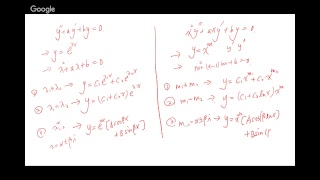 Google
y''+ay'+by=0
→ y=e^λx
→ λ²+aλ+b=0
① λ₁≠λ₂ → y=c₁e^λ₁x+c₂e^λ₂x
② λ₁=λ₂ → y=(c₁+c₂x)e^λx
③ λ₁,₂ → y=e^αx[Acosβx
λ=α±βi +Bsinβx]
x²y''+axy'+by=0
→ y=x^m y' y''
→ m²+(a-1)m+b=0
① m₁≠m₂ → y=c₁x^m₁+c₂x^m₂
② m₁=m₂ → y=(c₁+c₂lnx)x^m
③ m₁,₂=α±βi → y=x^α[Acos(βlnx)
+Bsin(β